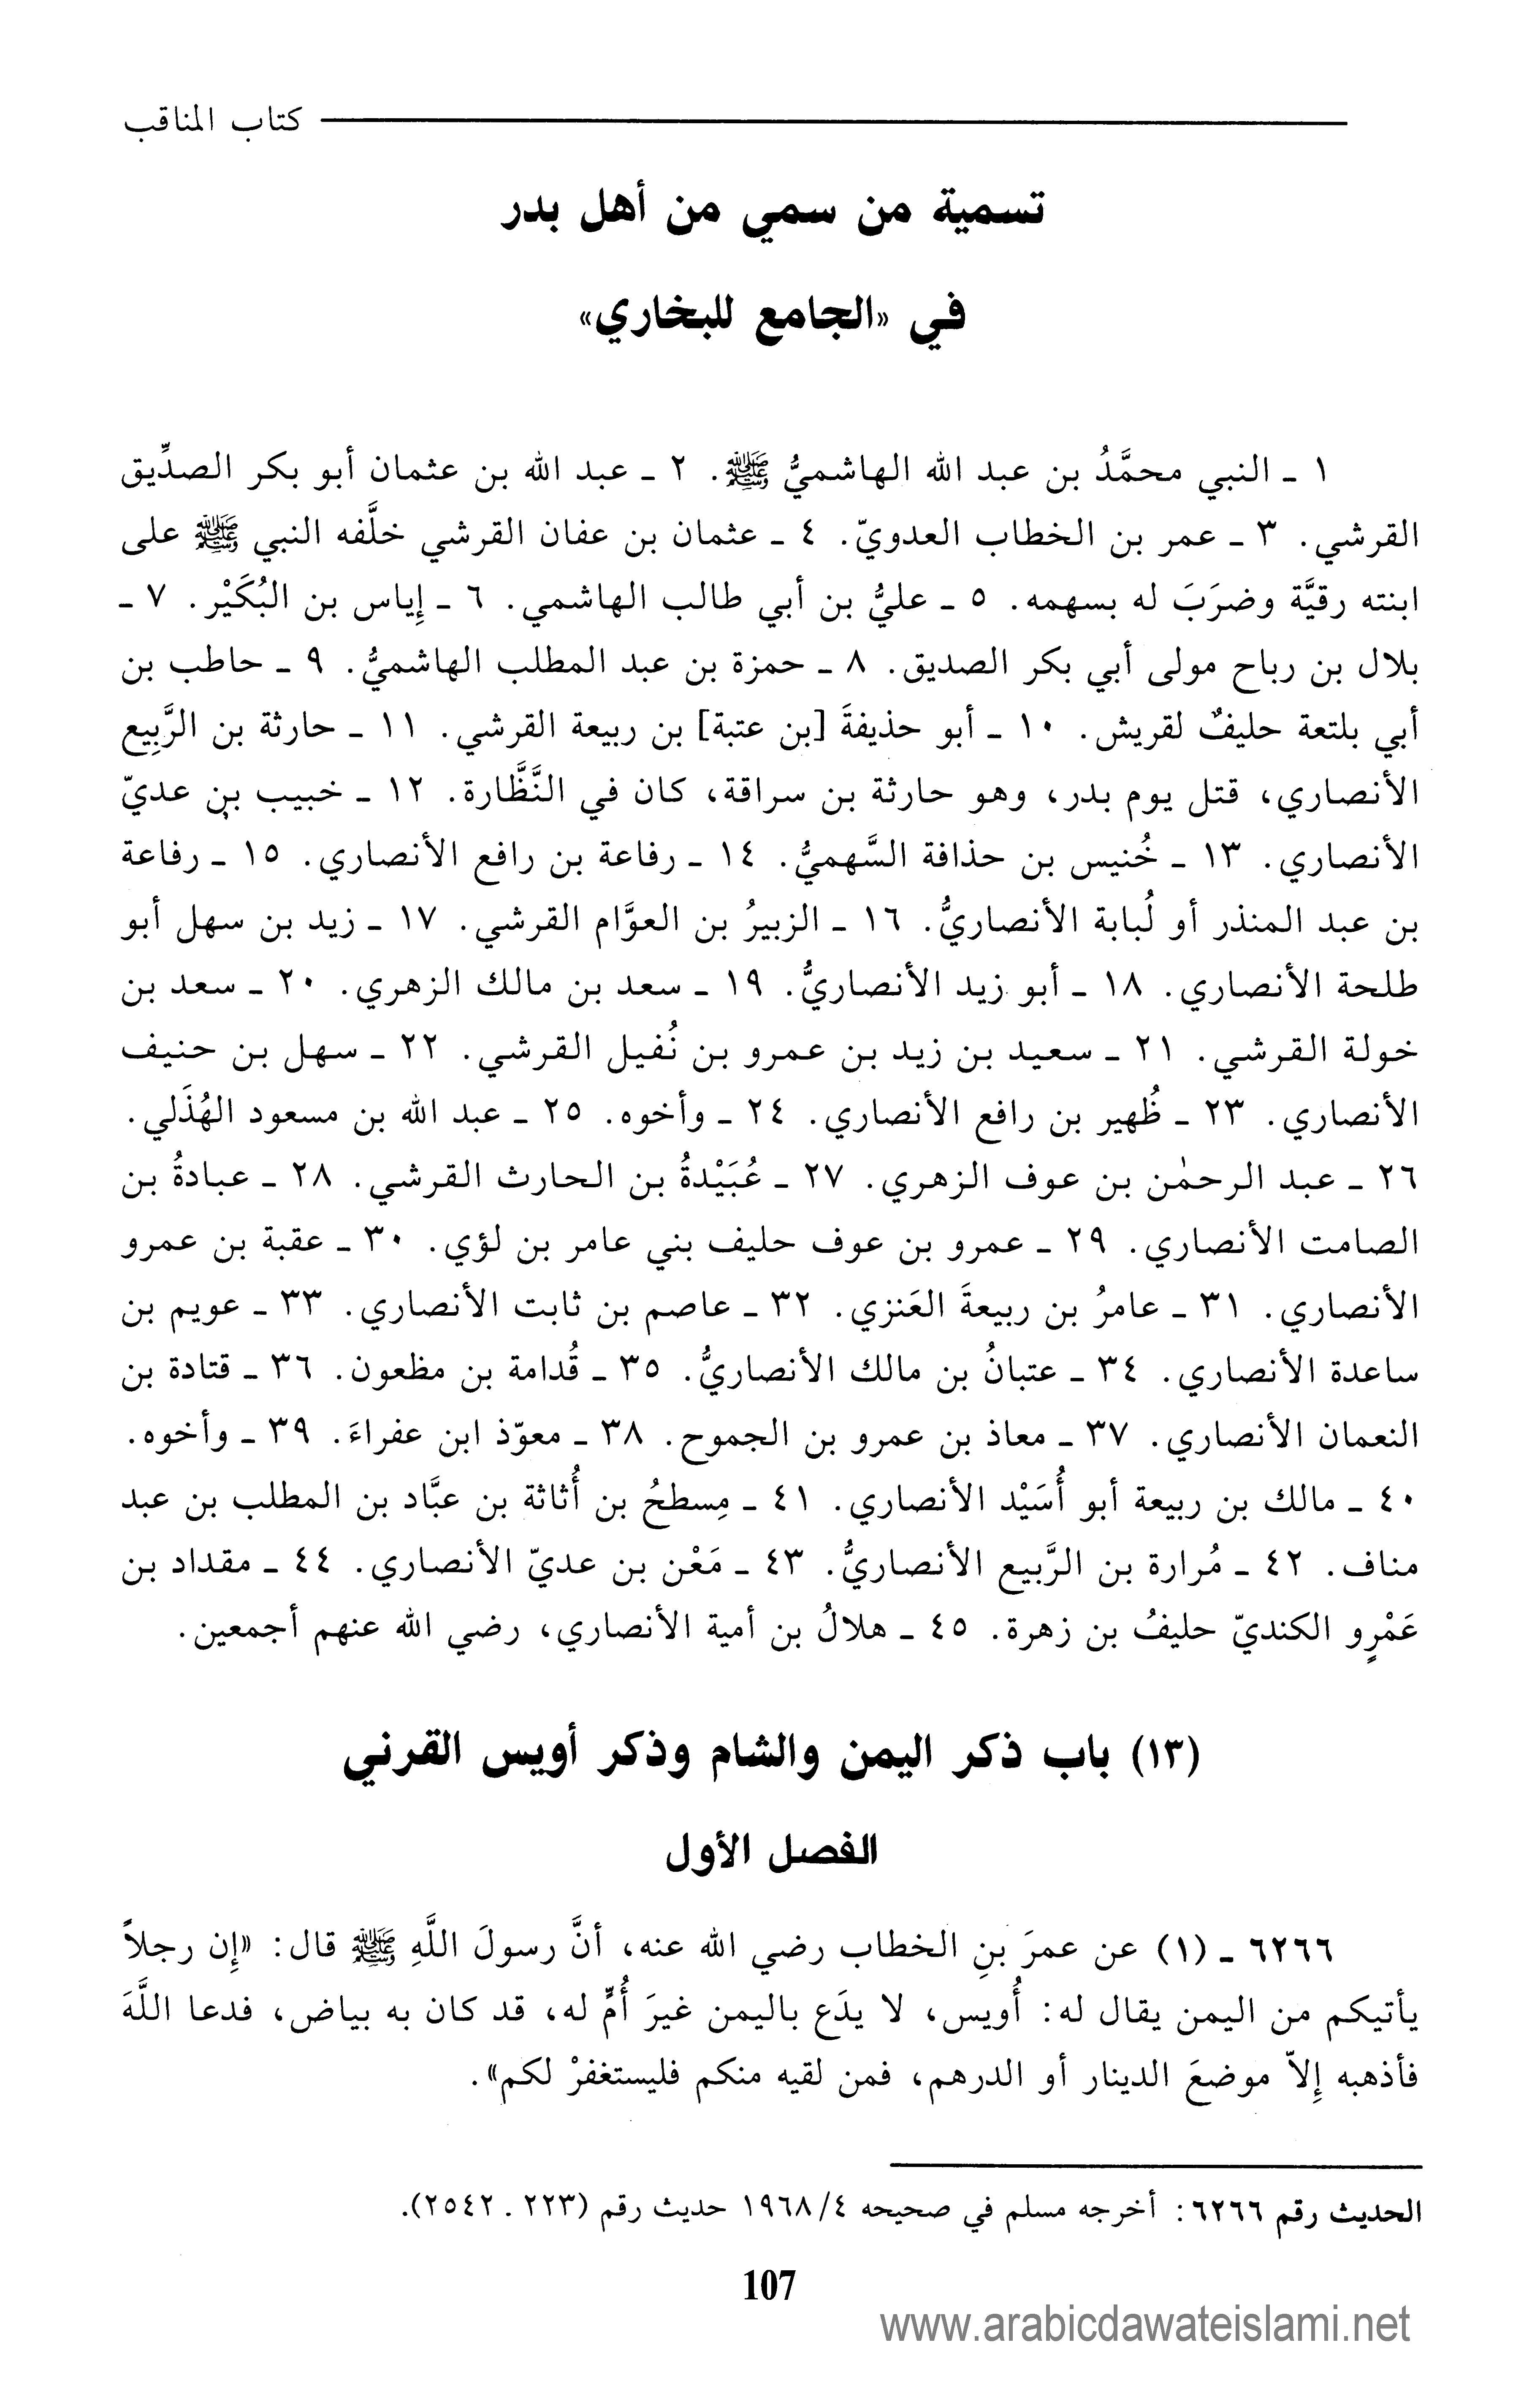 كتاب المناقب
تسمية من سمي من أهل بدر
في «الجامع للبخاري»
١ ـ النبي محمَّدُ بن عبد الله الهاشميُّ ﷺ. ٢ ـ عبد الله بن عثمان أبو بكر الصدِّيق
القرشي. ٣ ـ عمر بن الخطاب العدويّ. ٤ ـ عثمان بن عفان القرشي خلَّفه النبي ﷺ على
ابنته رقيَّة وضرَبَ له بسهمه. ٥ ـ عليُّ بن أبي طالب الهاشمي. ٦ ـ إِياس بن البُكَيْر. ٧ ـ
بلال بن رباح مولى أبي بكر الصديق. ٨ ـ حمزة بن عبد المطلب الهاشميُّ. ٩ ـ حاطب بن
أبي بلتعة حليفٌ لقريش. ١٠ ـ أبو حذيفةَ [بن عتبة] بن ربيعة القرشي. ١١ ـ حارثة بن الرَّبِيع
الأنصاري، قتل يوم بدر، وهو حارثة بن سراقة، كان في النَّظَّارة. ١٢ ـ خبيب بن عديّ
الأنصاري. ١٣ ـ خُنيس بن حذافة السَّهميُّ. ١٤ ـ رفاعة بن رافع الأنصاري. ١٥ ـ رفاعة
بن عبد المنذر أو لُبابة الأنصاريُّ. ١٦ ـ الزبيرُ بن العوَّام القرشي. ١٧ ـ زيد بن سهل أبو
طلحة الأنصاري. ١٨ ـ أبو زيد الأنصاريُّ. ١٩ ـ سعد بن مالك الزهري. ٢٠ ـ سعد بن
خولة القرشي. ٢١ ـ سعيد بن زيد بن عمرو بن نُفيل القرشي. ٢٢ ـ سهل بن حنيف
الأنصاري. ٢٣ ـ ظُهير بن رافع الأنصاري. ٢٤ ـ وأخوه. ٢٥ ـ عبد الله بن مسعود الهُذَلي.
٢٦ ـ عبد الرحمٰن بن عوف الزهري. ٢٧ ـ عُبَيْدةُ بن الحارث القرشي. ٢٨ ـ عبادةُ بن
الصامت الأنصاري. ٢٩ ـ عمرو بن عوف حليف بني عامر بن لؤي. ٣٠ ـ عقبة بن عمرو
الأنصاري. ٣١ ـ عامرُ بن ربيعةَ العَنزي. ٣٢ ـ عاصم بن ثابت الأنصاري. ٣٣ ـ عويم بن
ساعدة الأنصاري. ٣٤ ـ عتبانُ بن مالك الأنصاريُّ. ٣٥ ـ قُدامة بن مظعون. ٣٦ ـ قتادة بن
النعمان الأنصاري. ٣٧ ـ معاذ بن عمرو بن الجموح. ٣٨ ـ معوّذ ابن عفراءَ. ٣٩ ـ وأخوه.
٤٠ ـ مالك بن ربيعة أبو أُسَيْد الأنصاري. ٤١ ـ مِسطحُ بن أُثاثة بن عبَّاد بن المطلب بن عبد
مناف. ٤٢ ـ مُرارة بن الرَّبيع الأنصاريُّ. ٤٣ ـ مَعْن بن عديّ الأنصاري. ٤٤ ـ مقداد بن
عَمْرٍو الكنديّ حليفُ بن زهرة. ٤٥ ـ هلالُ بن أمية الأنصاري، رضي الله عنهم أجمعين.
(١٣) باب ذكر اليمن والشام وذكر أويس القرني
الفصل الأول
٦٢٦٦ ـ (١) عن عمرَ بنِ الخطاب رضي الله عنه، أنَّ رسولَ اللَّهِ ﷺ قال: «إِن رجلاً
يأتيكم من اليمن يقال له: أُويس، لا يدَع باليمن غيرَ أُمٍّ له، قد كان به بياض، فدعا اللَّهَ
فأذهبه إِلاّ موضعَ الدينار أو الدرهم، فمن لقيه منكم فليستغفرْ لكم».
الحديث رقم ٦٢٦٦: أخرجه مسلم في صحيحه ٤/١٩٦٨ حديث رقم (٢٢٣ . ٢٥٤٢).
107
www.arabicdawateislami.net